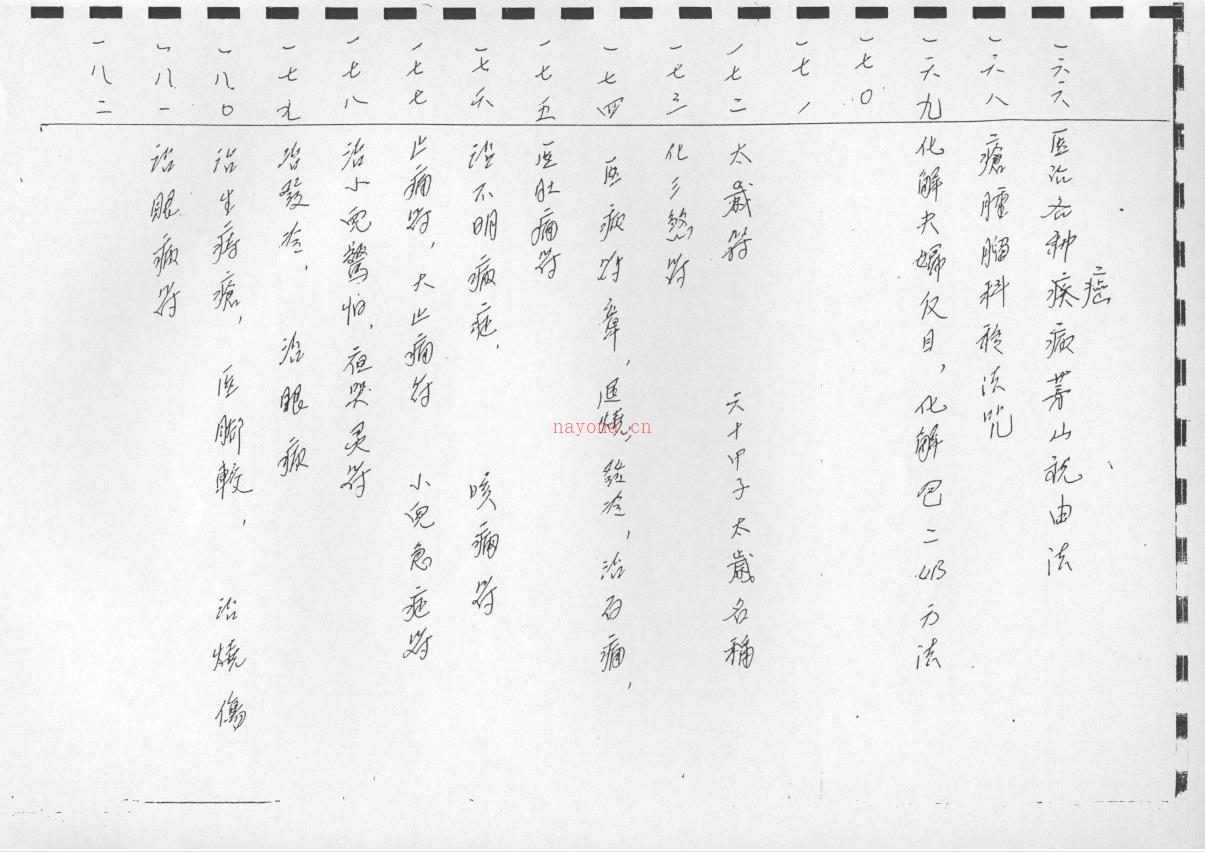 一六六 医治各种疾病茅山祝由法
癌
一六八 瘡腫瘤科移法咒
一六九 化解夫婦反目，化解巴二奶方法
一七〇
一七一
一七二 太歲符 六十甲子太歲名稱
一七三 化三煞符
一七四 医病符章，退燒，發冷，治百痛，
一七五 医肚痛符
一七六 治不明病症， 咳痛符
一七七 止痛符，大止痛符 小兒急症符
一七八 治小兒驚怕，夜哭灵符
一七九 治發冷， 治眼病
一八〇 治生痔瘡， 医脚較， 治燒傷
一八一 治眼病符
一八二
nayona.cn